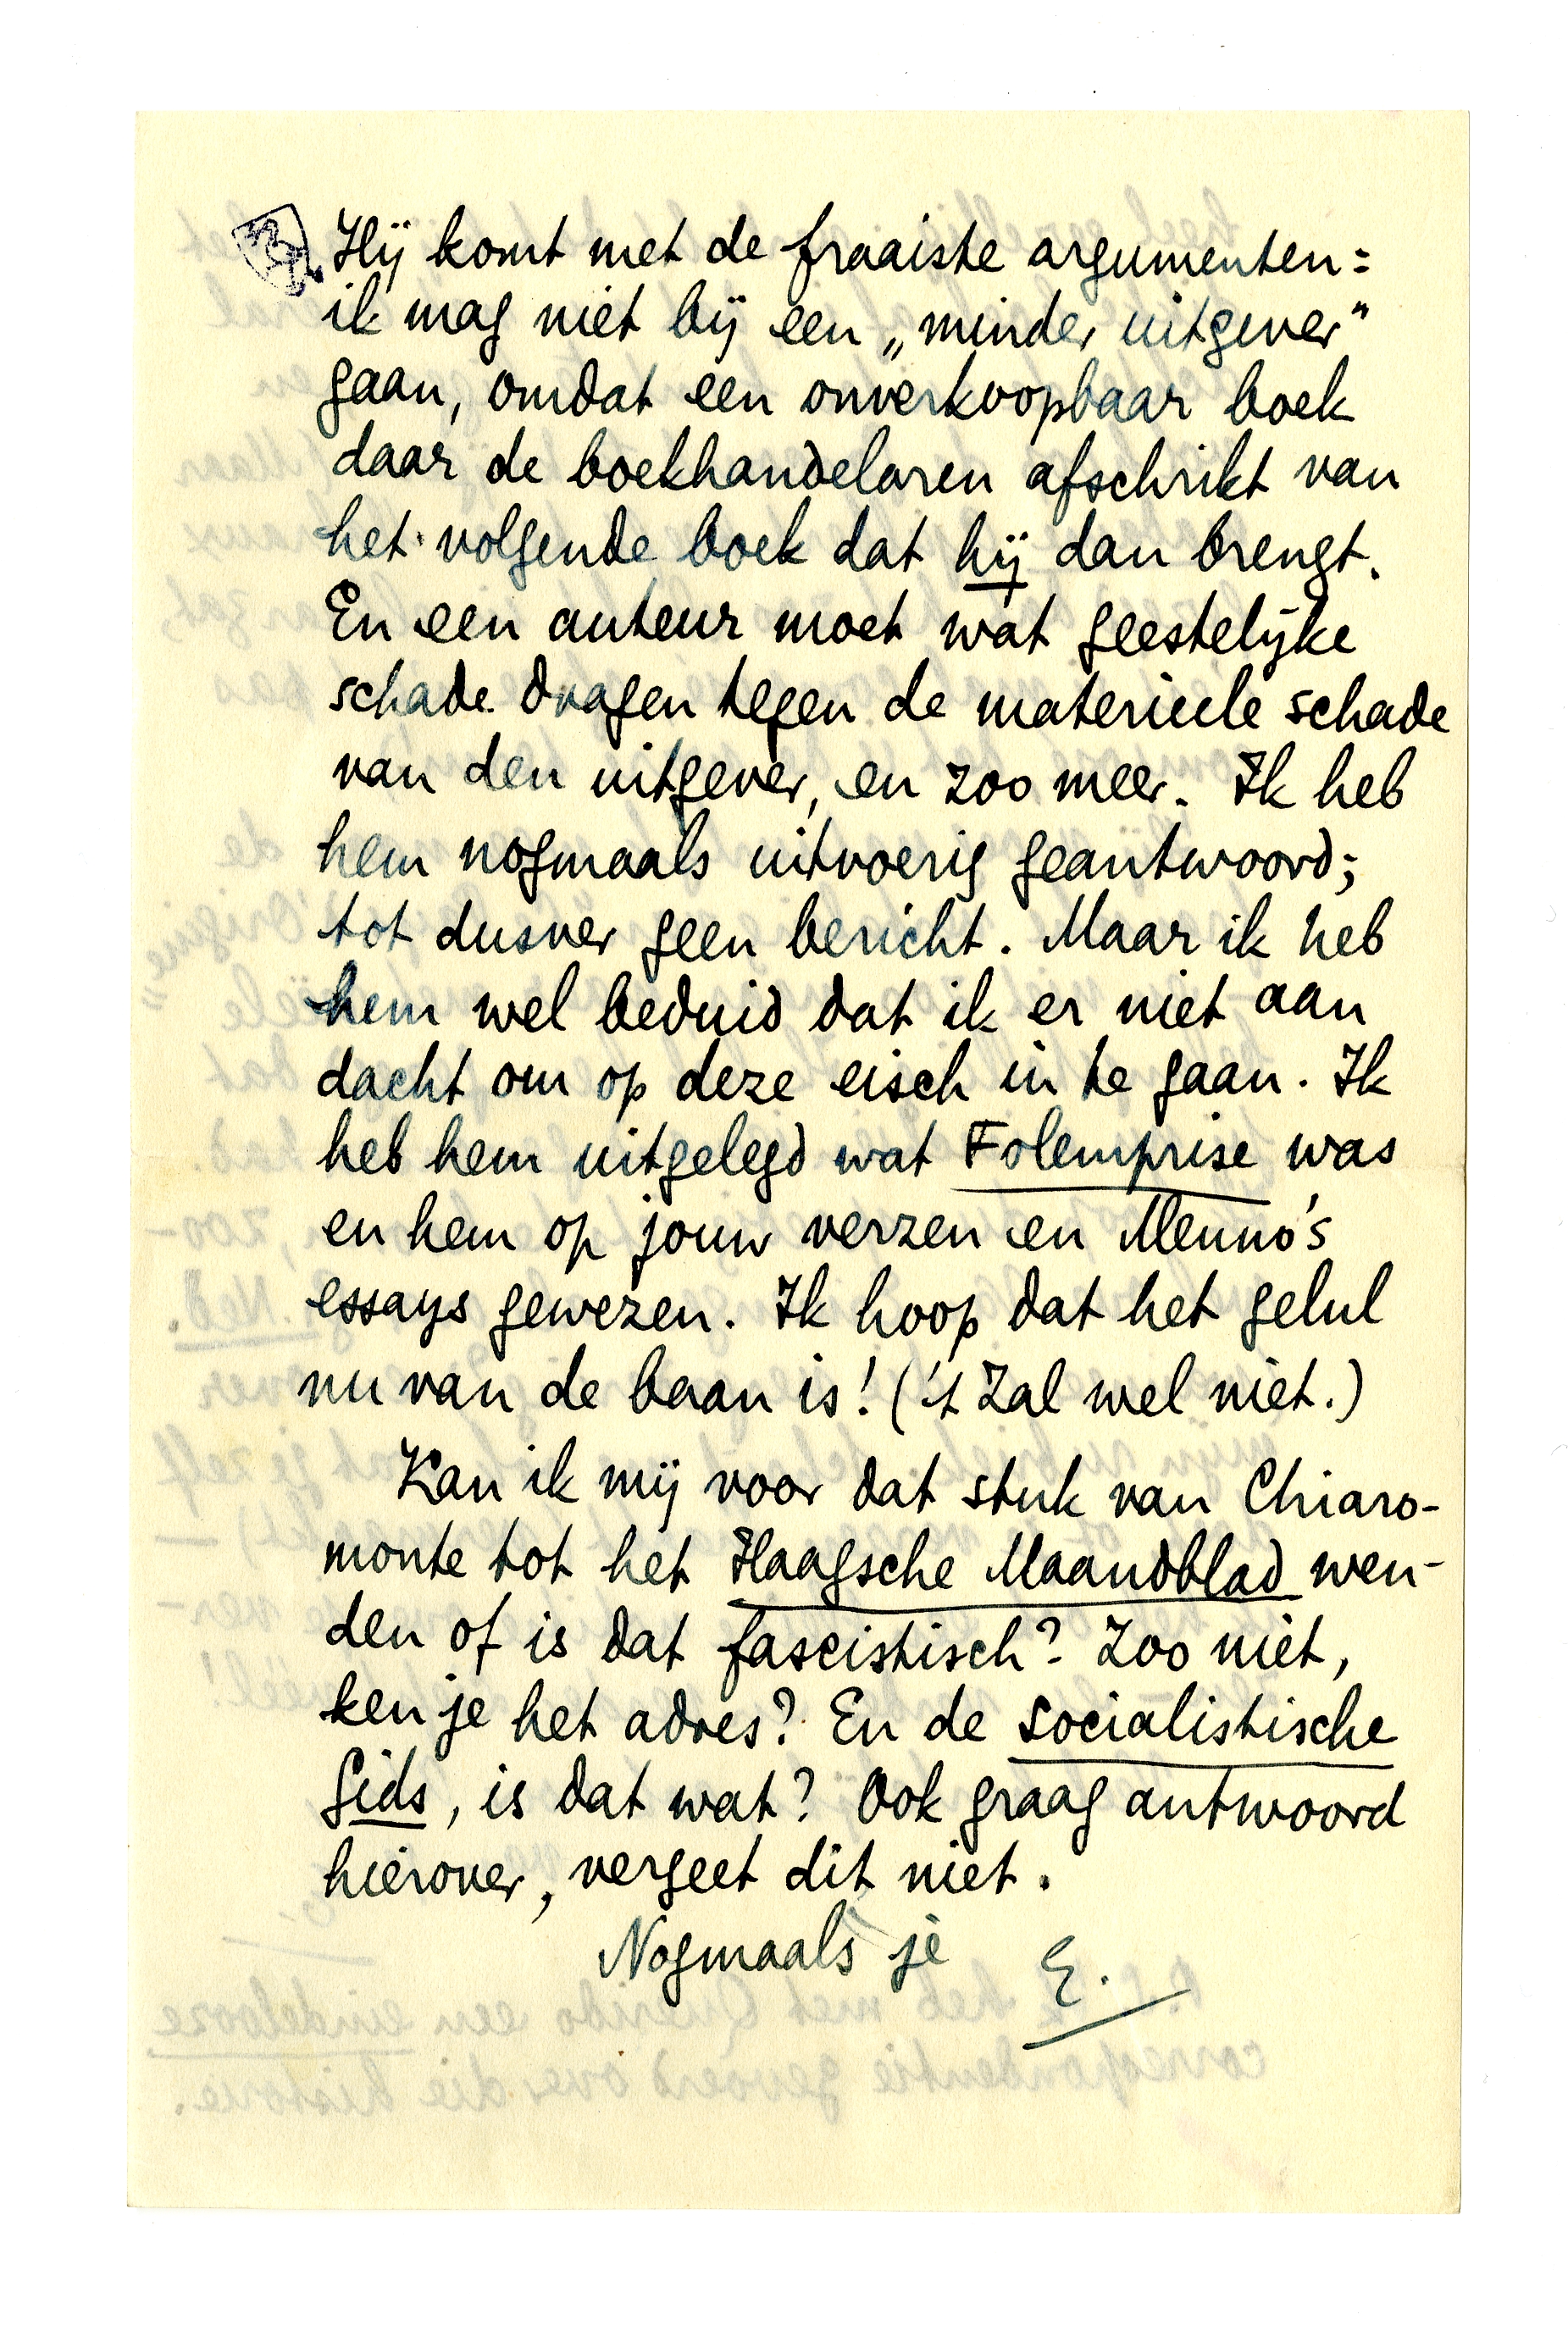 Hij komt met de fraaiste argumenten:
ik mag niet bij een „minder uitgever”
gaan, omdat een onverkoopbaar boek
daar de boekhandelaren afschrikt van
het volgende boek dat hij dan brengt.
En een auteur moet wat geestelijke
schade dragen tegen de materieele schade
van den uitgever, en zoo meer. Ik heb
hem nogmaals uitvoerig geantwoord;
tot dusver geen bericht. Maar ik heb
hem wel beduid dat ik er niet aan
dacht om op deze eisch in te gaan. Ik
heb hem uitgelegd wat Folemprise was
en hem op jouw verzen en Menno's
essays gewezen. Ik hoop dat het gelul
nu van de baan is! ('t Zal wel niet.)
Kan ik mij voor dat stuk van Chiaro-
monte tot het Haagsche Maandblad wen-
den of is dat fascistisch? Zoo niet,
ken je het adres? En de socialistische
Gids, is dat wat? Ook graag antwoord
hierover, vergeet dit niet.
Nogmaals je E.